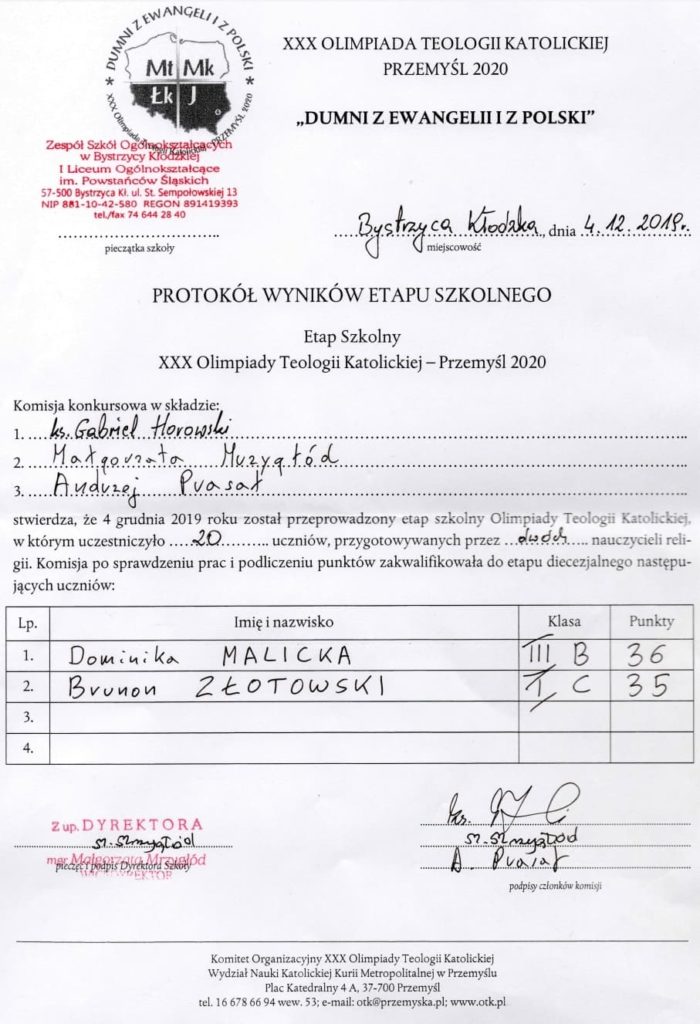 DUMNI Z EWANGELII I Z POLSKI
Mt Mk
Łk J
XXX Olimpiada Teologii Katolickiej PRZEMYŚL 2020
XXX OLIMPIADA TEOLOGII KATOLICKIEJ
PRZEMYŚL 2020
„DUMNI Z EWANGELII I Z POLSKI”
Zespół Szkół Ogólnokształcących
w Bystrzycy Kłodzkiej
I Liceum Ogólnokształcące
im. Powstańców Śląskich
57-500 Bystrzyca Kł. ul. St. Sempołowskiej 13
NIP 881-10-42-580 REGON 891419393
tel./fax 74 644 28 40
pieczątka szkoły
Bystrzyca Kłodzka, dnia 4.12.2019r.
miejscowość
PROTOKÓŁ WYNIKÓW ETAPU SZKOLNEGO
Etap Szkolny
XXX Olimpiady Teologii Katolickiej – Przemyśl 2020
Komisja konkursowa w składzie:
1. ks. Gabriel Horowski
2. Małgorzata Mrzygłód
3. Andrzej Prasał
stwierdza, że 4 grudnia 2019 roku został przeprowadzony etap szkolny Olimpiady Teologii Katolickiej,
w którym uczestniczyło 20 uczniów, przygotowywanych przez dwóch nauczycieli reli-
gii. Komisja po sprawdzeniu prac i podliczeniu punktów zakwalifikowała do etapu diecezjalnego następu-
jących uczniów:
Lp. Imię i nazwisko Klasa Punkty
1. Dominika MALICKA III B 36
2. Brunon ZŁOTOWSKI I C 35
3.
4.
Z up. DYREKTORA
mgr Małgorzata Mrzygłód
pieczęć i podpis Dyrektora Szkoły
WICEDYREKTOR
ks.
A. Prasał
podpisy członków komisji
Komitet Organizacyjny XXX Olimpiady Teologii Katolickiej
Wydział Nauki Katolickiej Kurii Metropolitalnej w Przemyślu
Plac Katedralny 4 A, 37-700 Przemyśl
tel. 16 678 66 94 wew. 53; e-mail: otk@przemyska.pl; www.otk.pl